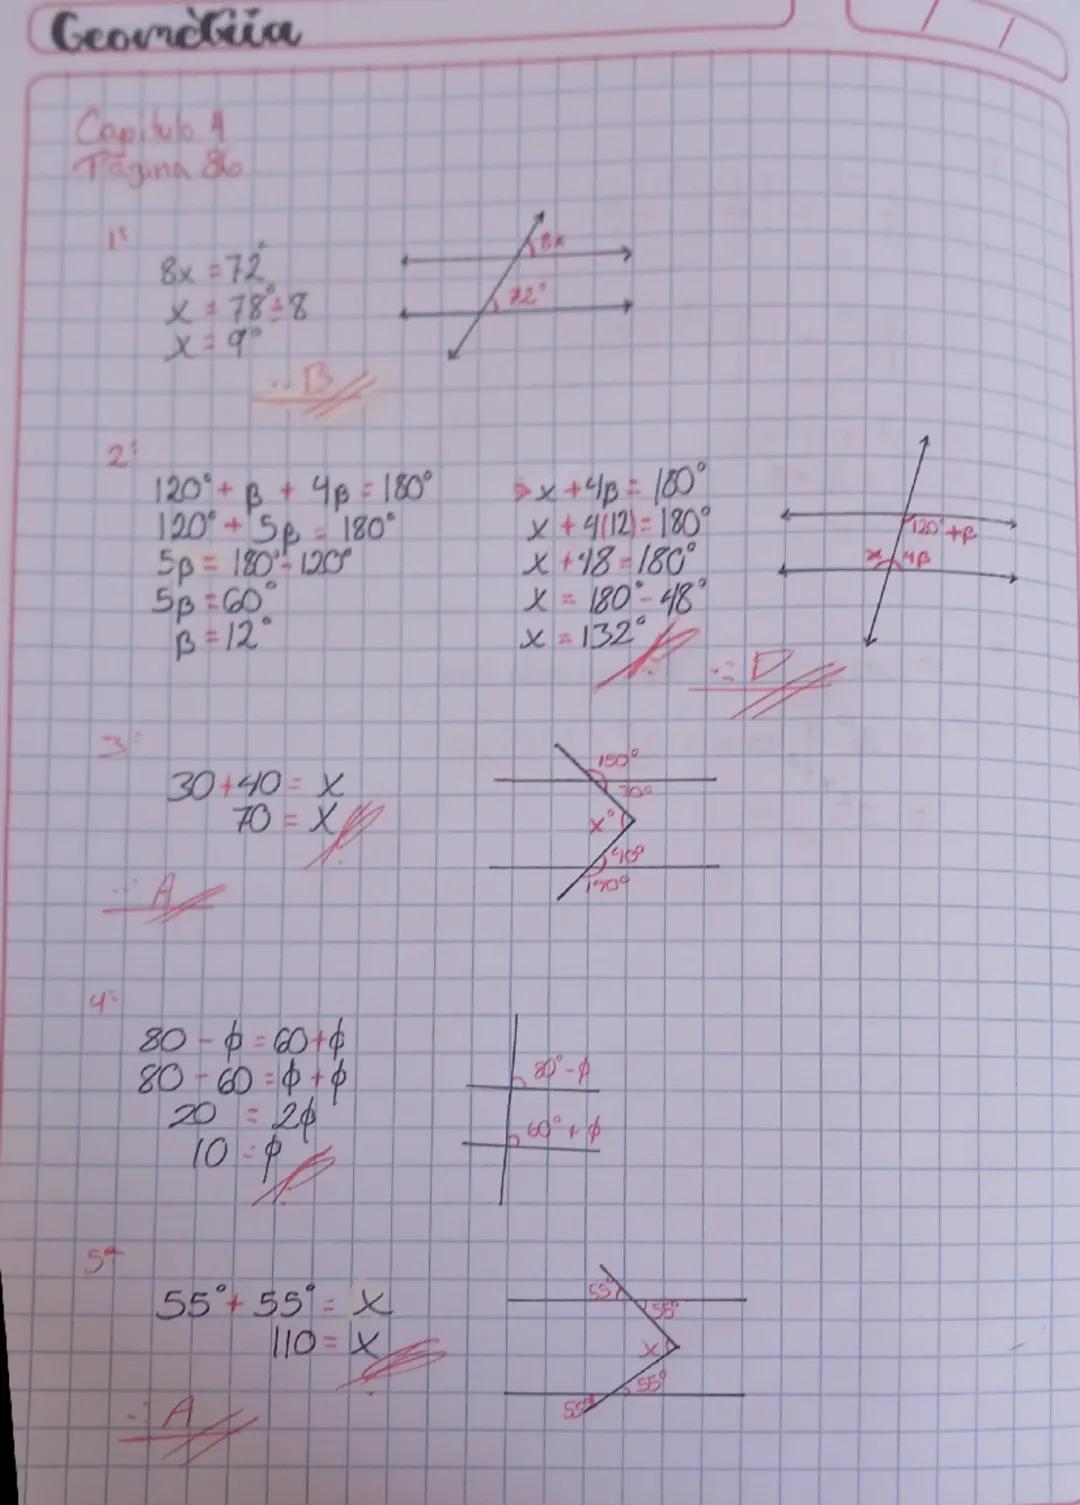 Geometria
Capitulo 4
Página 86
1º
8x = 72°
x = 78° ÷ 8
x = 9°
∴ B
8x
72°
2º
120° + β + 4β = 180°
120° + 5β = 180°
5β = 180° - 120°
5β = 60°
β = 12°
x + 4β = 180°
x + 4(12) = 180°
x + 48 = 180°
x = 180° - 48°
x = 132°
∴ D
120° + β
x 4β
3º
30 + 40 = x
70 = x
∴ A
150°
x°
40°
4º
80 - ϕ = 60 + ϕ
80 - 60 = ϕ + ϕ
20 = 2ϕ
10 = ϕ
80° - ϕ
60° + ϕ
5º
55° + 55° = x
110 = x
∴ A
55°
55°
x
55°
55°